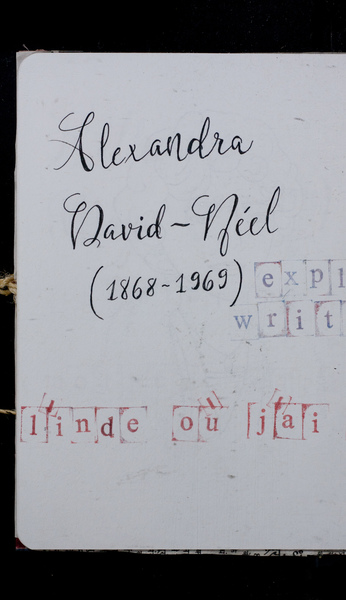 Alexandra
David-Néel
(1868-1969)
expl
writ
linde où jai